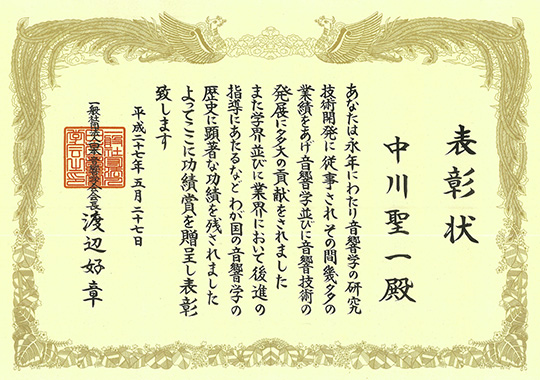 表彰状
中川聖一殿
あなたは永年にわたり音響学の研究
技術開発に従事され その間幾多の
業績をあげ音響学並びに音響技術の
発展に多大の貢献をされました
また学界並びに業界において後進の
指導にあたるなど わが国の音響学の
歴史に顕著な功績を残されました
よってここに功績賞を贈呈し表彰
致します
平成二十七年五月二十七日
一般社団法人日本音響学会会長 渡辺好章